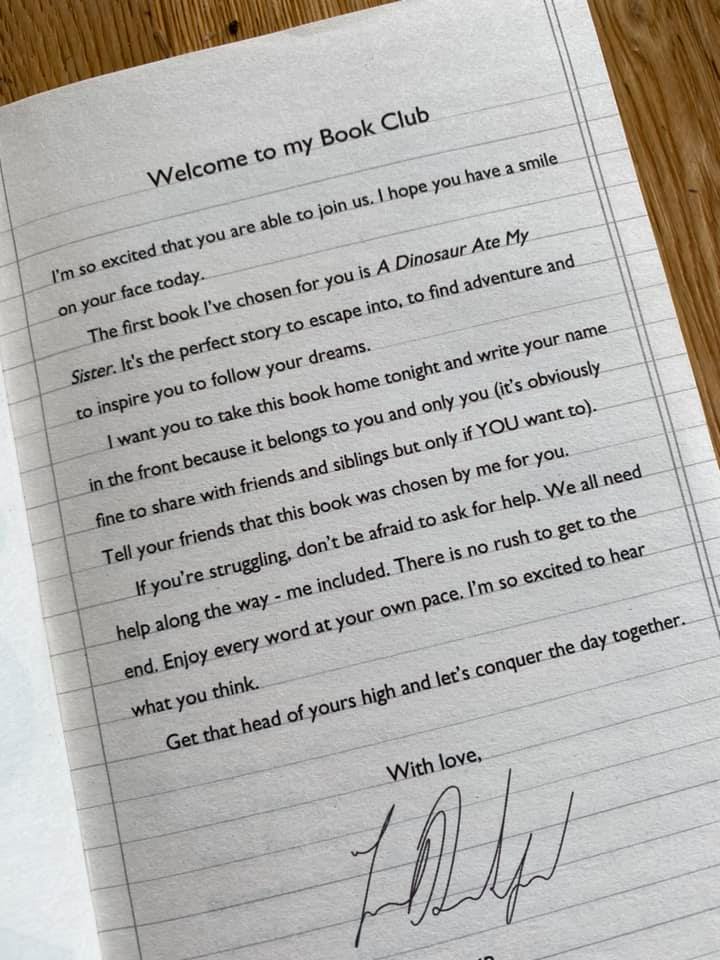 Welcome to my Book Club
I'm so excited that you are able to join us. I hope you have a smile
on your face today.
The first book I've chosen for you is A Dinosaur Ate My
Sister. It's the perfect story to escape into, to find adventure and
to inspire you to follow your dreams.
I want you to take this book home tonight and write your name
in the front because it belongs to you and only you (it's obviously
fine to share with friends and siblings but only if YOU want to).
Tell your friends that this book was chosen by me for you.
If you're struggling, don't be afraid to ask for help. We all need
help along the way - me included. There is no rush to get to the
end. Enjoy every word at your own pace. I'm so excited to hear
what you think.
Get that head of yours high and let's conquer the day together.
With love,